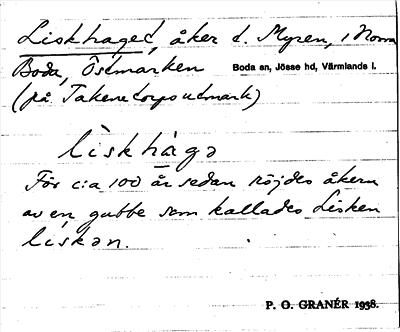 Liskhaged, åker t. Myren, i Norra
Boda, Östmarken Boda sn, Jösse hd, Värmlands l.
(på Takenetorps utmark)
lìskhàgə
För c:a 100 år sedan röjdes åkern
av en gubbe som kallades Lisken
lískən.
P. O. GRANÉR 1938.